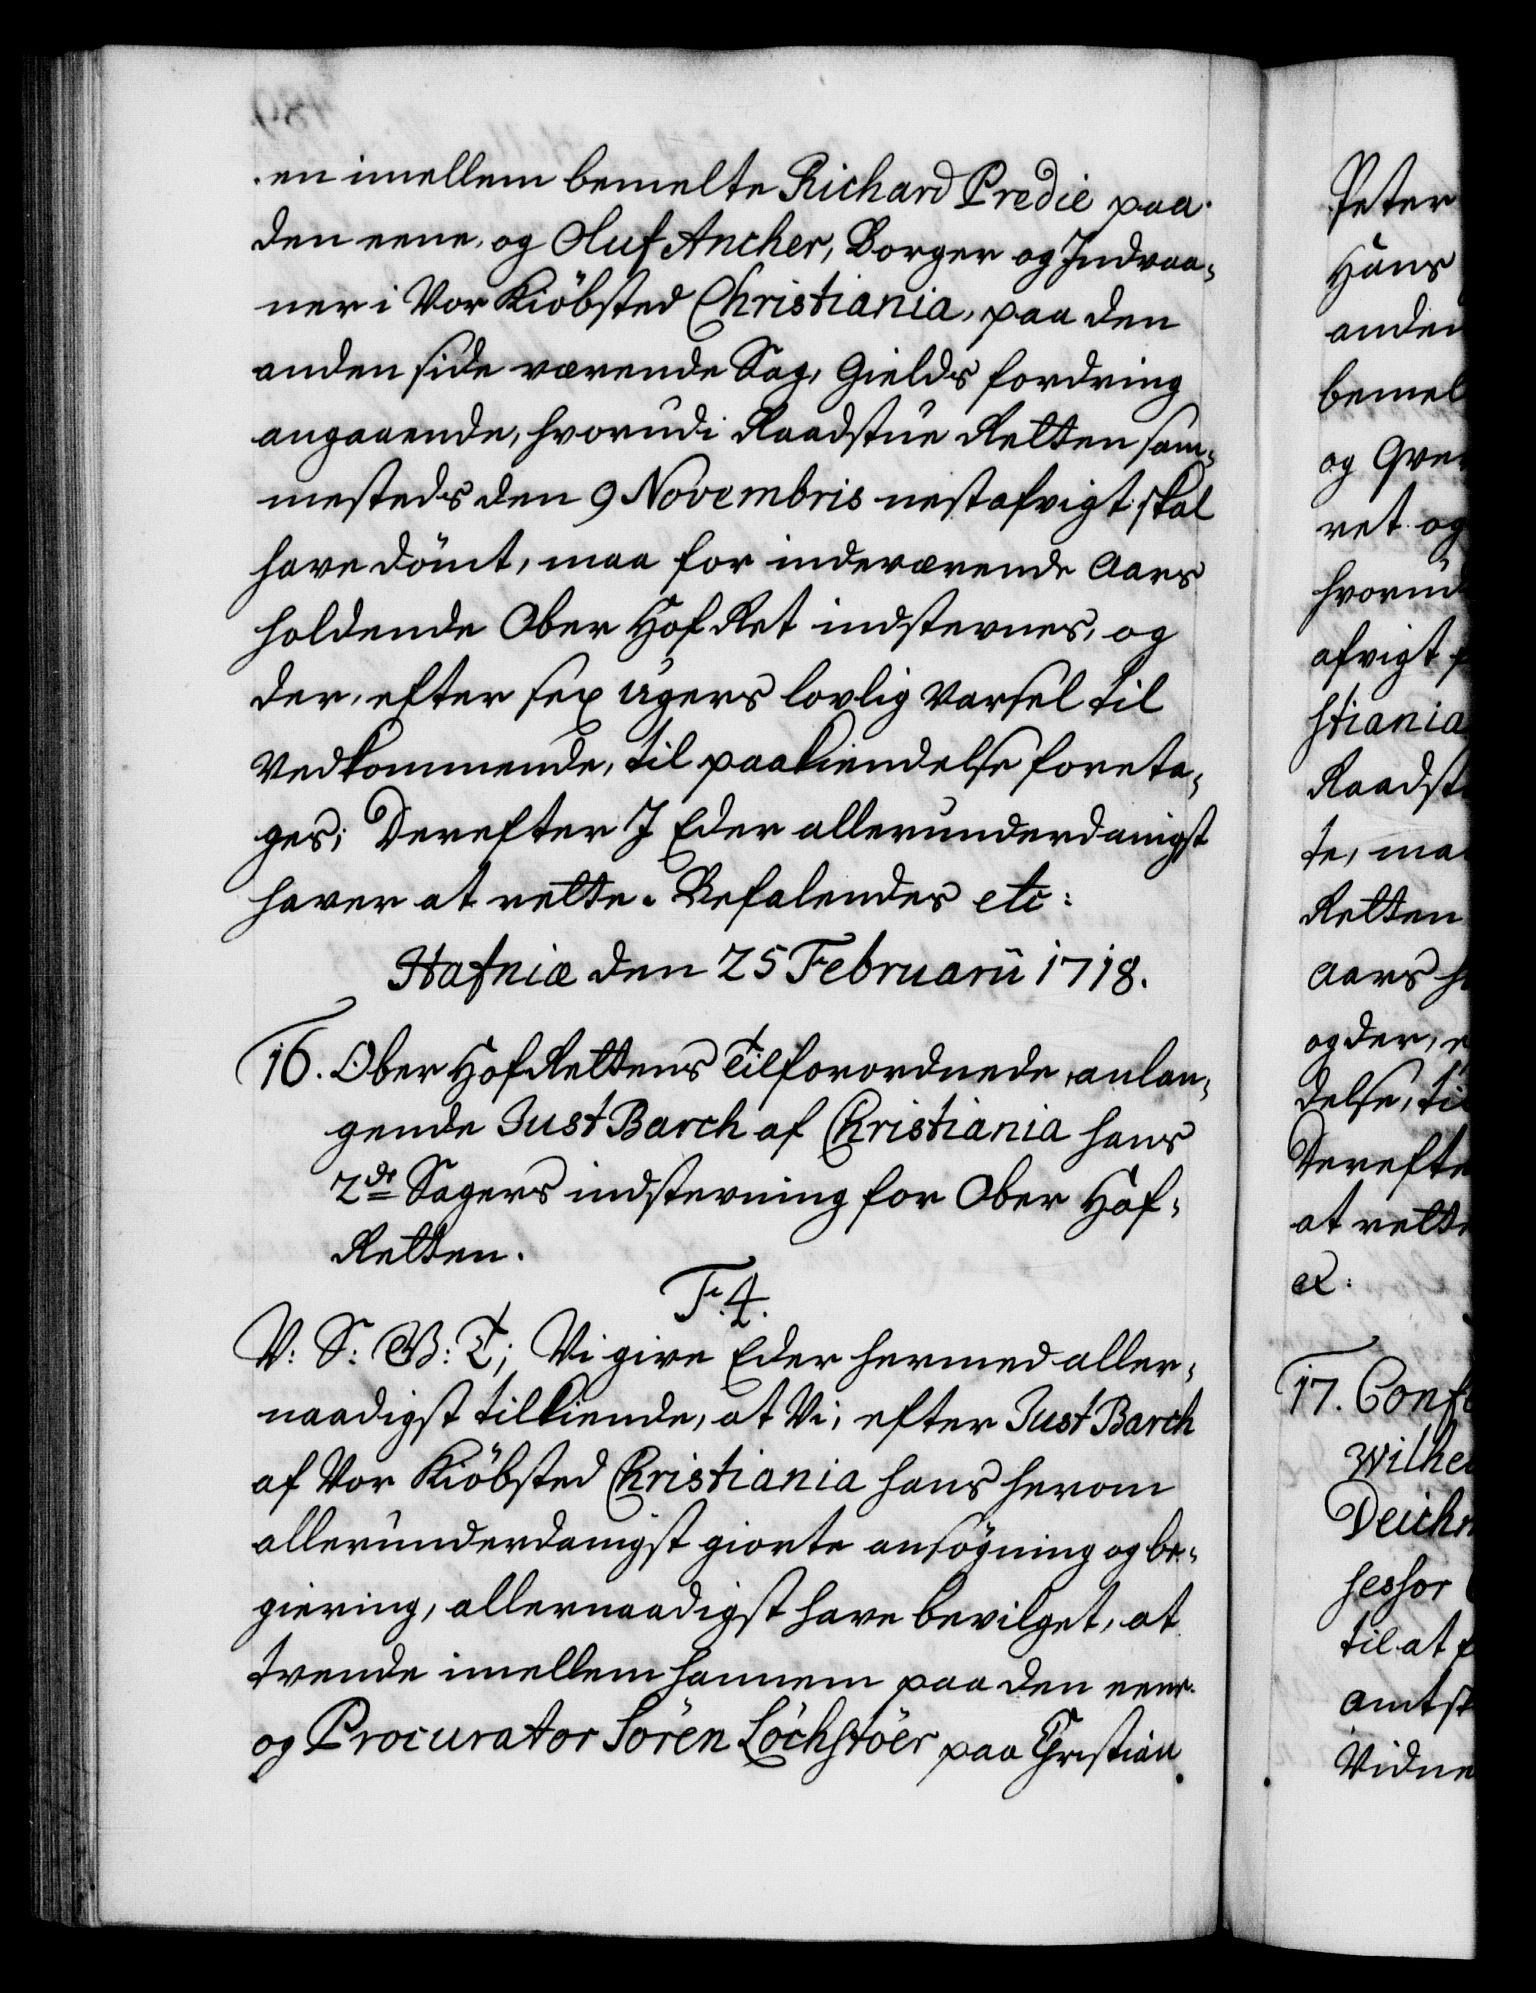 en imellem bemelte Richard Predie paa
den eene, og Oluf Ancher, Borger og Indvaa-
ner i Vor Kiöbsted Christiania, paa den
anden side værende Sag, Gields fordring
angaaende, hvorudi Raadstue Retten sam-
mesteds den 9 Novembris nestafvigt skal
have dömt, maa for indeværende Aars
holdende Ober Hof Ret indstevnes, og
der, efter sex ugers lovlig Varsel til
Vedkommende, til paakiendelse foreta-
ges; Derefter I Eder allerunderdanigst
haver at rette. Befalendes etc:
Hafniæ den 25 Februarii 1718.
16. Ober HofRettens Tilforordnede anlan-
gende Just Barch af Christiania hans
2de Sagers indstevning for Ober Hof-
Retten.
F. 4.
V: S: G: T; Vi give Eder hermed aller-
naadigst tilkiende, at Vi, efter Just Barch
af Vor Kiöbsted Christiania hans herom
allerunderdanigst giorte ansögning og be-
giering, allernaadigst have bevilget, at
tvende imellem hannem paa den eene
og Procurator Sören Löchstöer paa Christian
Peter
Hans
anden
bemel
og Qve
ret og
hvorud
afvigt
stiania
Raadst
te, ma
Retten
Aars h
og der, e
delse, til
Derefte
at rette
17. Conf
Wilhe
Deichm
sessor
til at
Amts
Vidne